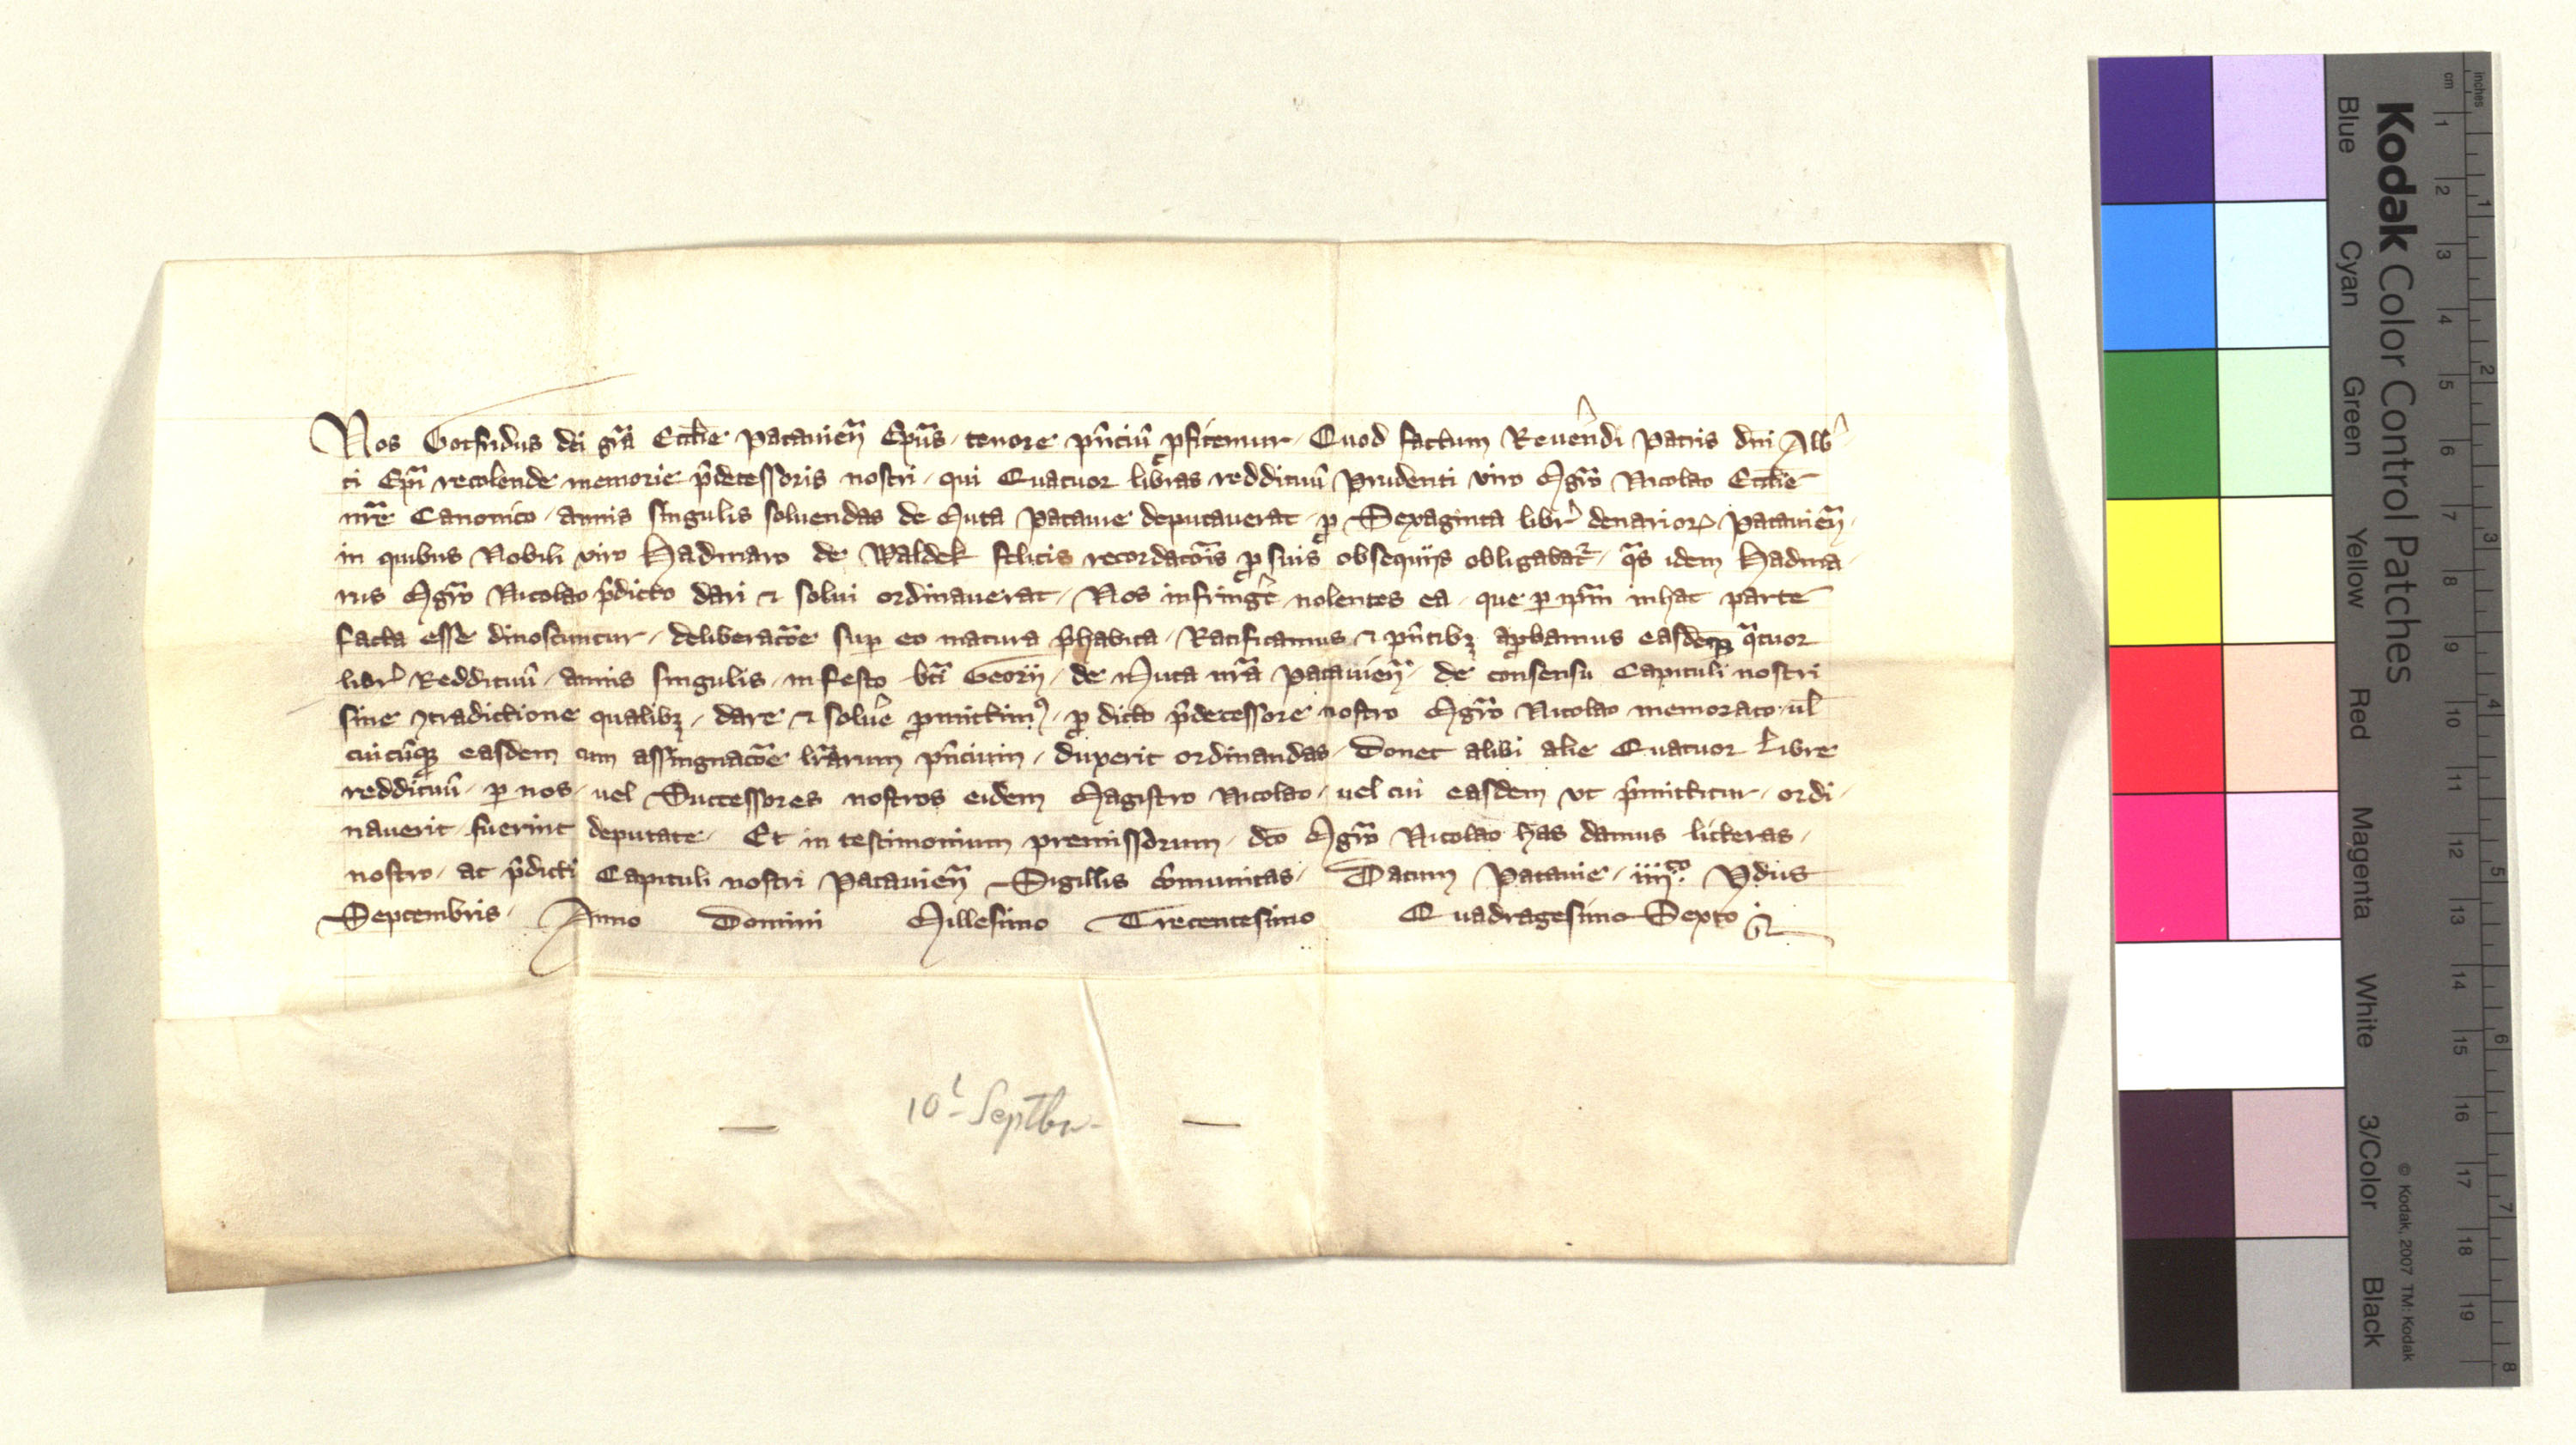 Nos Gotfridus dei gr̄a Eccl̄ie Patauien̄ Ep̄us tenore p̄nciū ꝓfitemur Quod factum Reuerendi Patris dn̄i Alb
ti Ep̄i recolende memorie p̄decessoris nostri qui Quatuor libras reddituū Prudenti viro Mgr̄o Nicolao Eccl̄ie
nr̄e Canonico annis singulis soluendas de Muta Patauie deputauerat ꝓ Sexaginta libr̄ denarioꝝ Patauien̄
in quibus Nobili viro Hadmaro de Waldek felicis recordaco̅is ꝓ suis obsequijs obligabat᷑ q̄s idem Hadma
rus Mgr̄o Nicolao p̄dicto dari ⁊ solui ordinauerat Nos infringe̅ nolentes ea que ꝑ ip̄m in hac parte
facta esse dinoscuntur deliberaco̅e suꝑ eo matura p̄habita Ratificamus ⁊ p̄ntibꝫ aꝓbamus easdemqꝫ q̄tuor
libr̄ Reddituū annis singulis in festo bt̄i Georij de Muta nr̄a Patauien̄ de consensu Capituli nostri
sine ꝯtradictione qualibꝫ dare ⁊ solue̅ ꝓmittimꝰ ꝓ dicto p̄decessore nostro Mgr̄o Nicolao memorato ul̄
cuicūqꝫ easdem cum assingnaco̅e lr̄arum p̄ncium duxerit ordinandas Donec alibi alie Quatuor Libre
reddituū ꝑ nos uel Successores nostros eidem Magistro Nicolao uel cui easdem vt p̄mittitur ordi
nauerit fuerint deputate Et in testimonium premissorum dc̄o Mgr̄o Nicolao has damus litteras
nostro ac p̄dicti Capituli nostri Patauien̄ Sigillis co̅munitas Datum Patauie iiij.to Ydus
Septembris Anno Domini Millesimo Trecentesimo Quadragesimo Sexto
10t Septbr
Kodak Color Control Patches
Blue Cyan Green Yellow Red Magenta White 3/Color Black
inches 1 2 3 4 5 6 7 8
cm 1 2 3 4 5 6 7 8 9 10 11 12 13 14 15 16 17 18 19
© Kodak, 2007 TM: Kodak